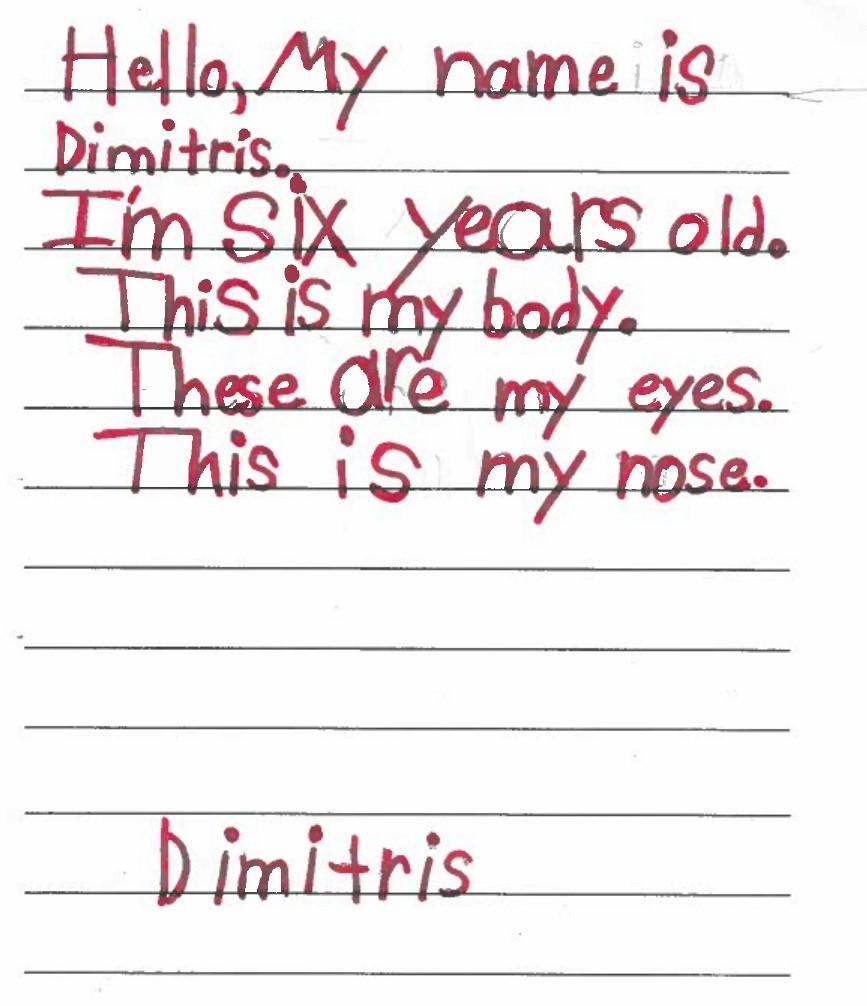 Hello, My name is
Dimitris.
I'm six years old.
This is my body.
These are my eyes.
This is my nose.
Dimitris